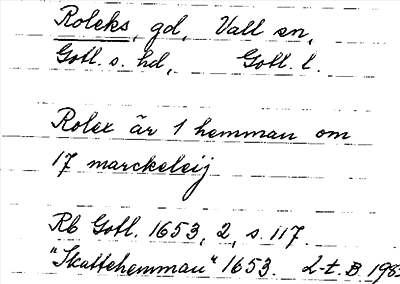 Roleks, gd, Vall sn,
Gotl. s. hd, Gotl. l.
Rolex är 1 hemman om
17 marckeleij
Rb Gotl. 1653, 2, s. 117.
"Skattehemman" 1653. L-t. B 198